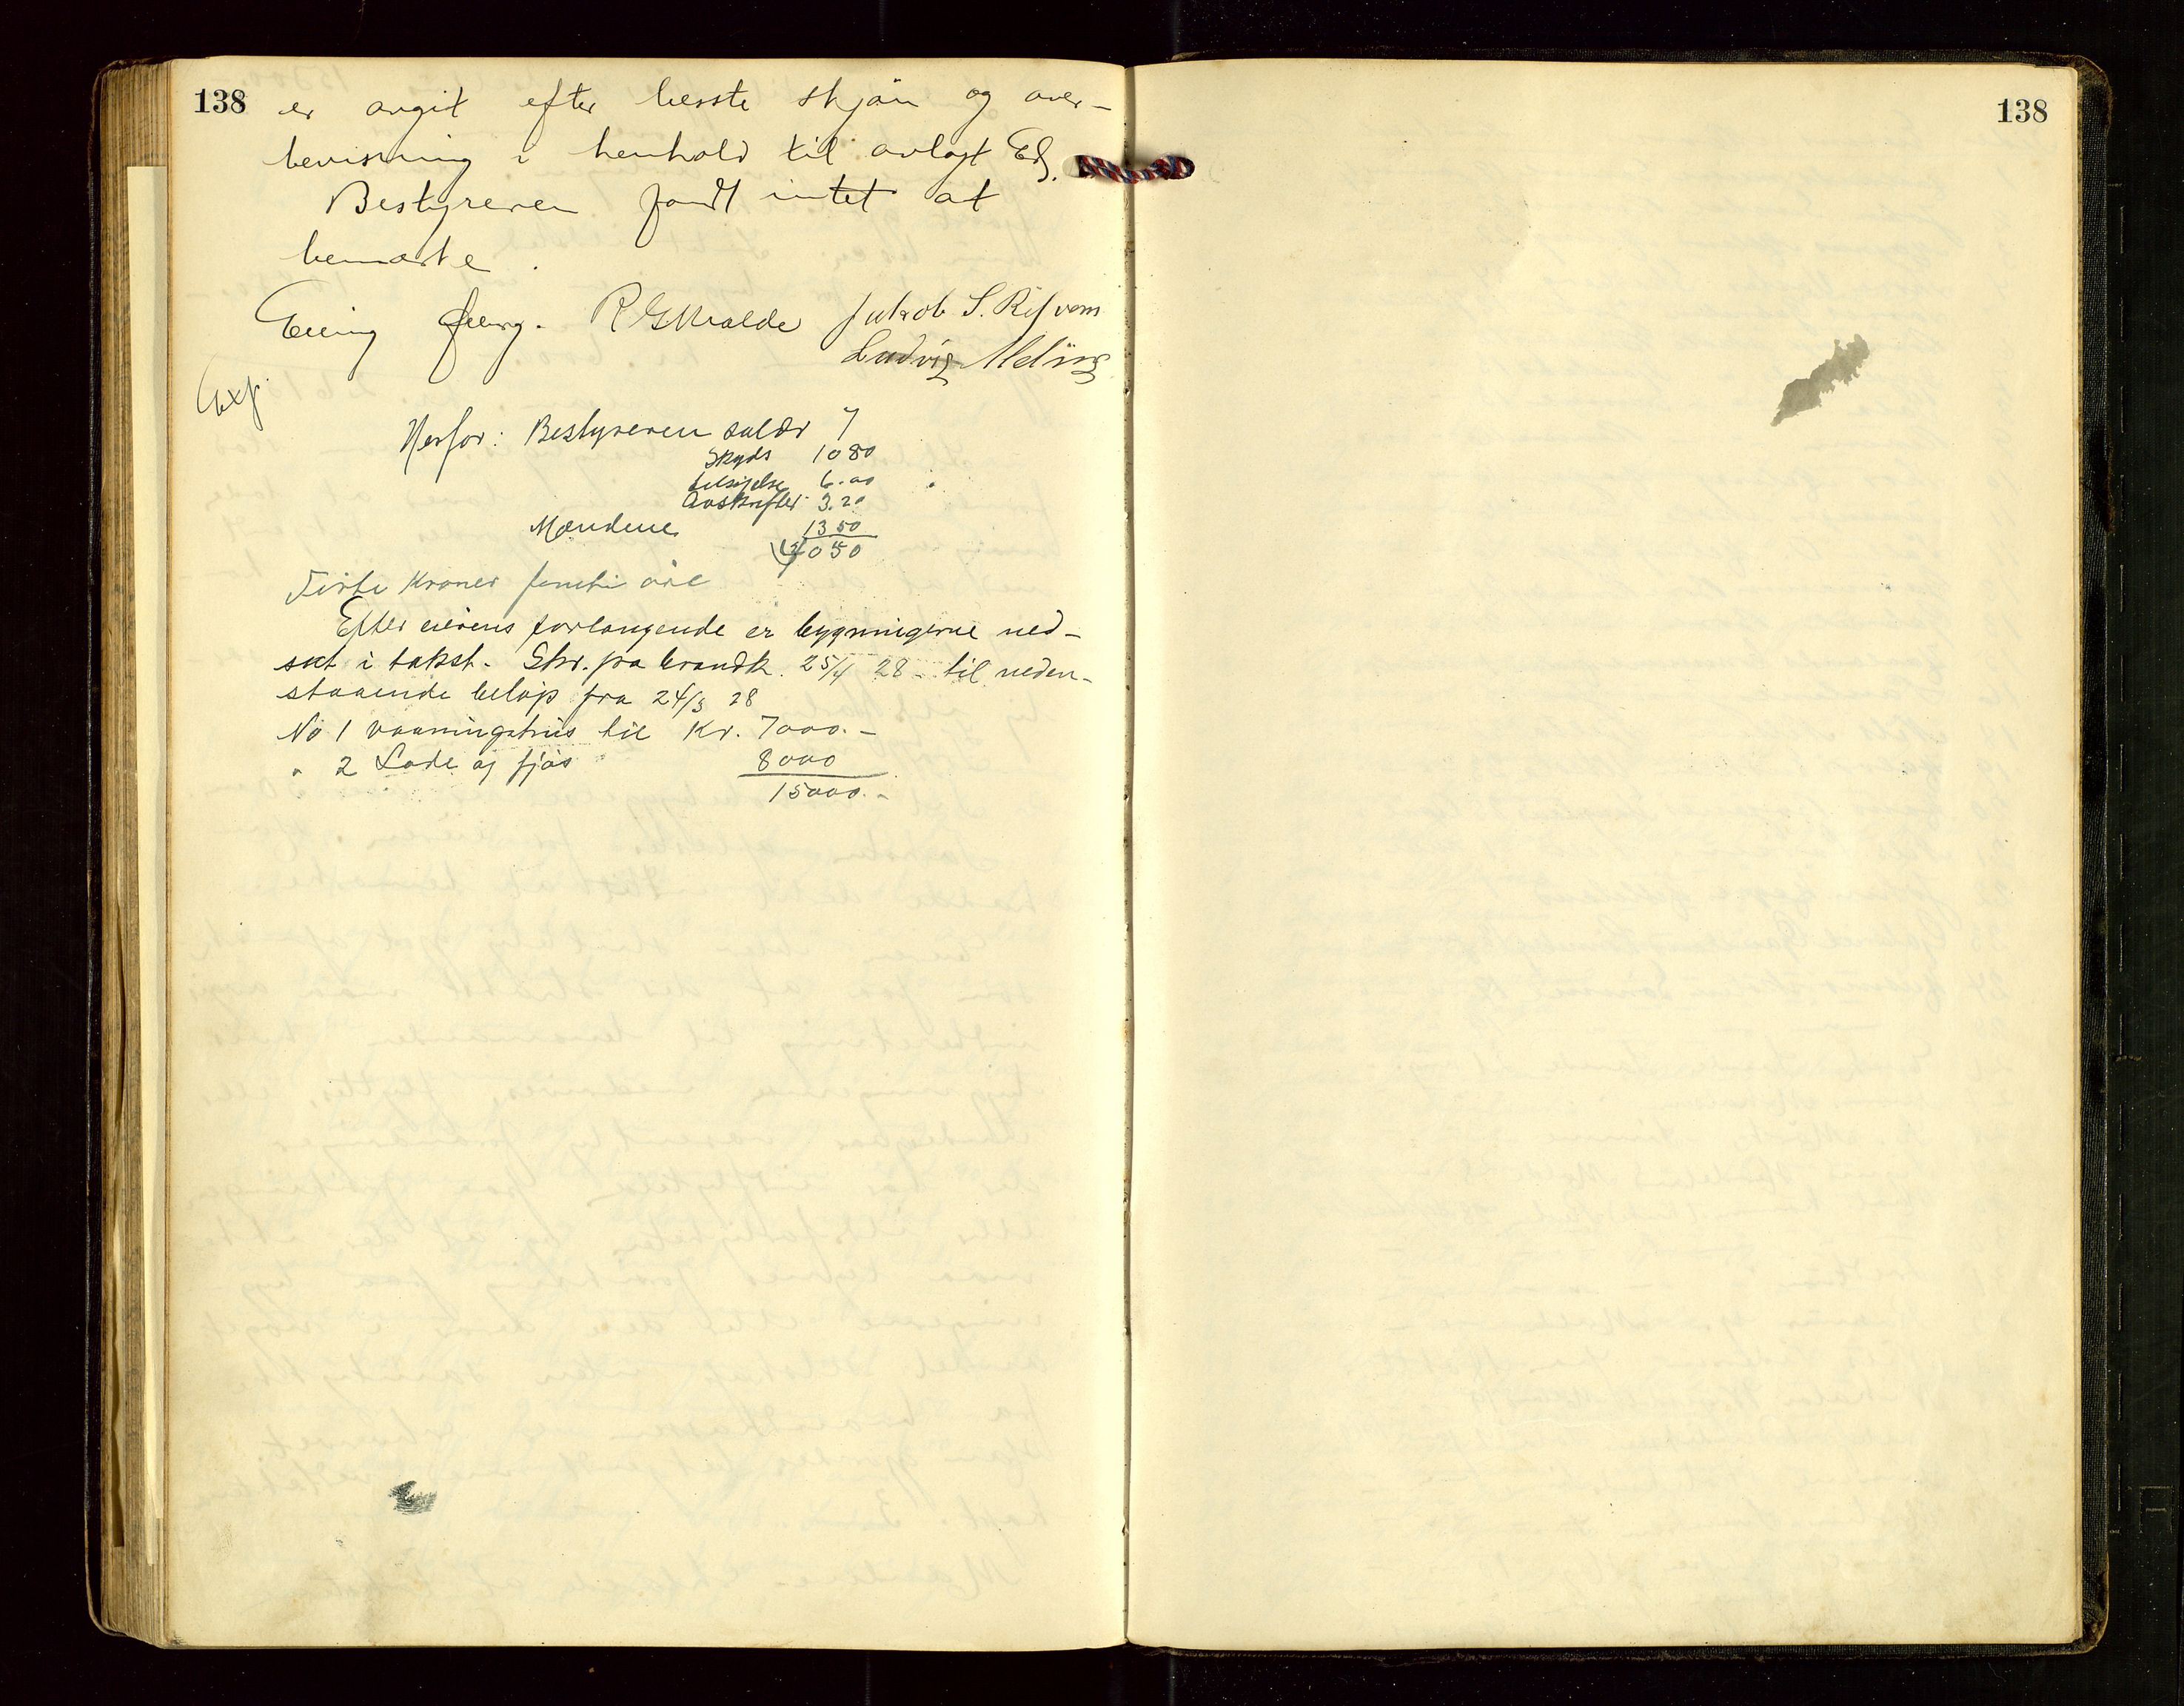 138
er avgit efter besste skjön og over-
bevisning i henhold til avlagt Ed.
Bestyreren fandt intet at
bemærke.
Jakob S.
Ludvig Meling
Exp.
Herfor: Bestyreren salær 7
Skyds 10 80
tilsigelse 6.00
Avskrifter 3.20
Mændene 13 50
40 50
Firti Kroner femti øre
Efter eierens forlangende er bygningerne ned-
sat i takst. Skr. fra brandk. 25/4 28 - til neden-
staaende beløp fra 24/3 28
No 1 vaaningshus til Kr. 7000.-
" 2 Lade og fjøs 8000
15000.-
138